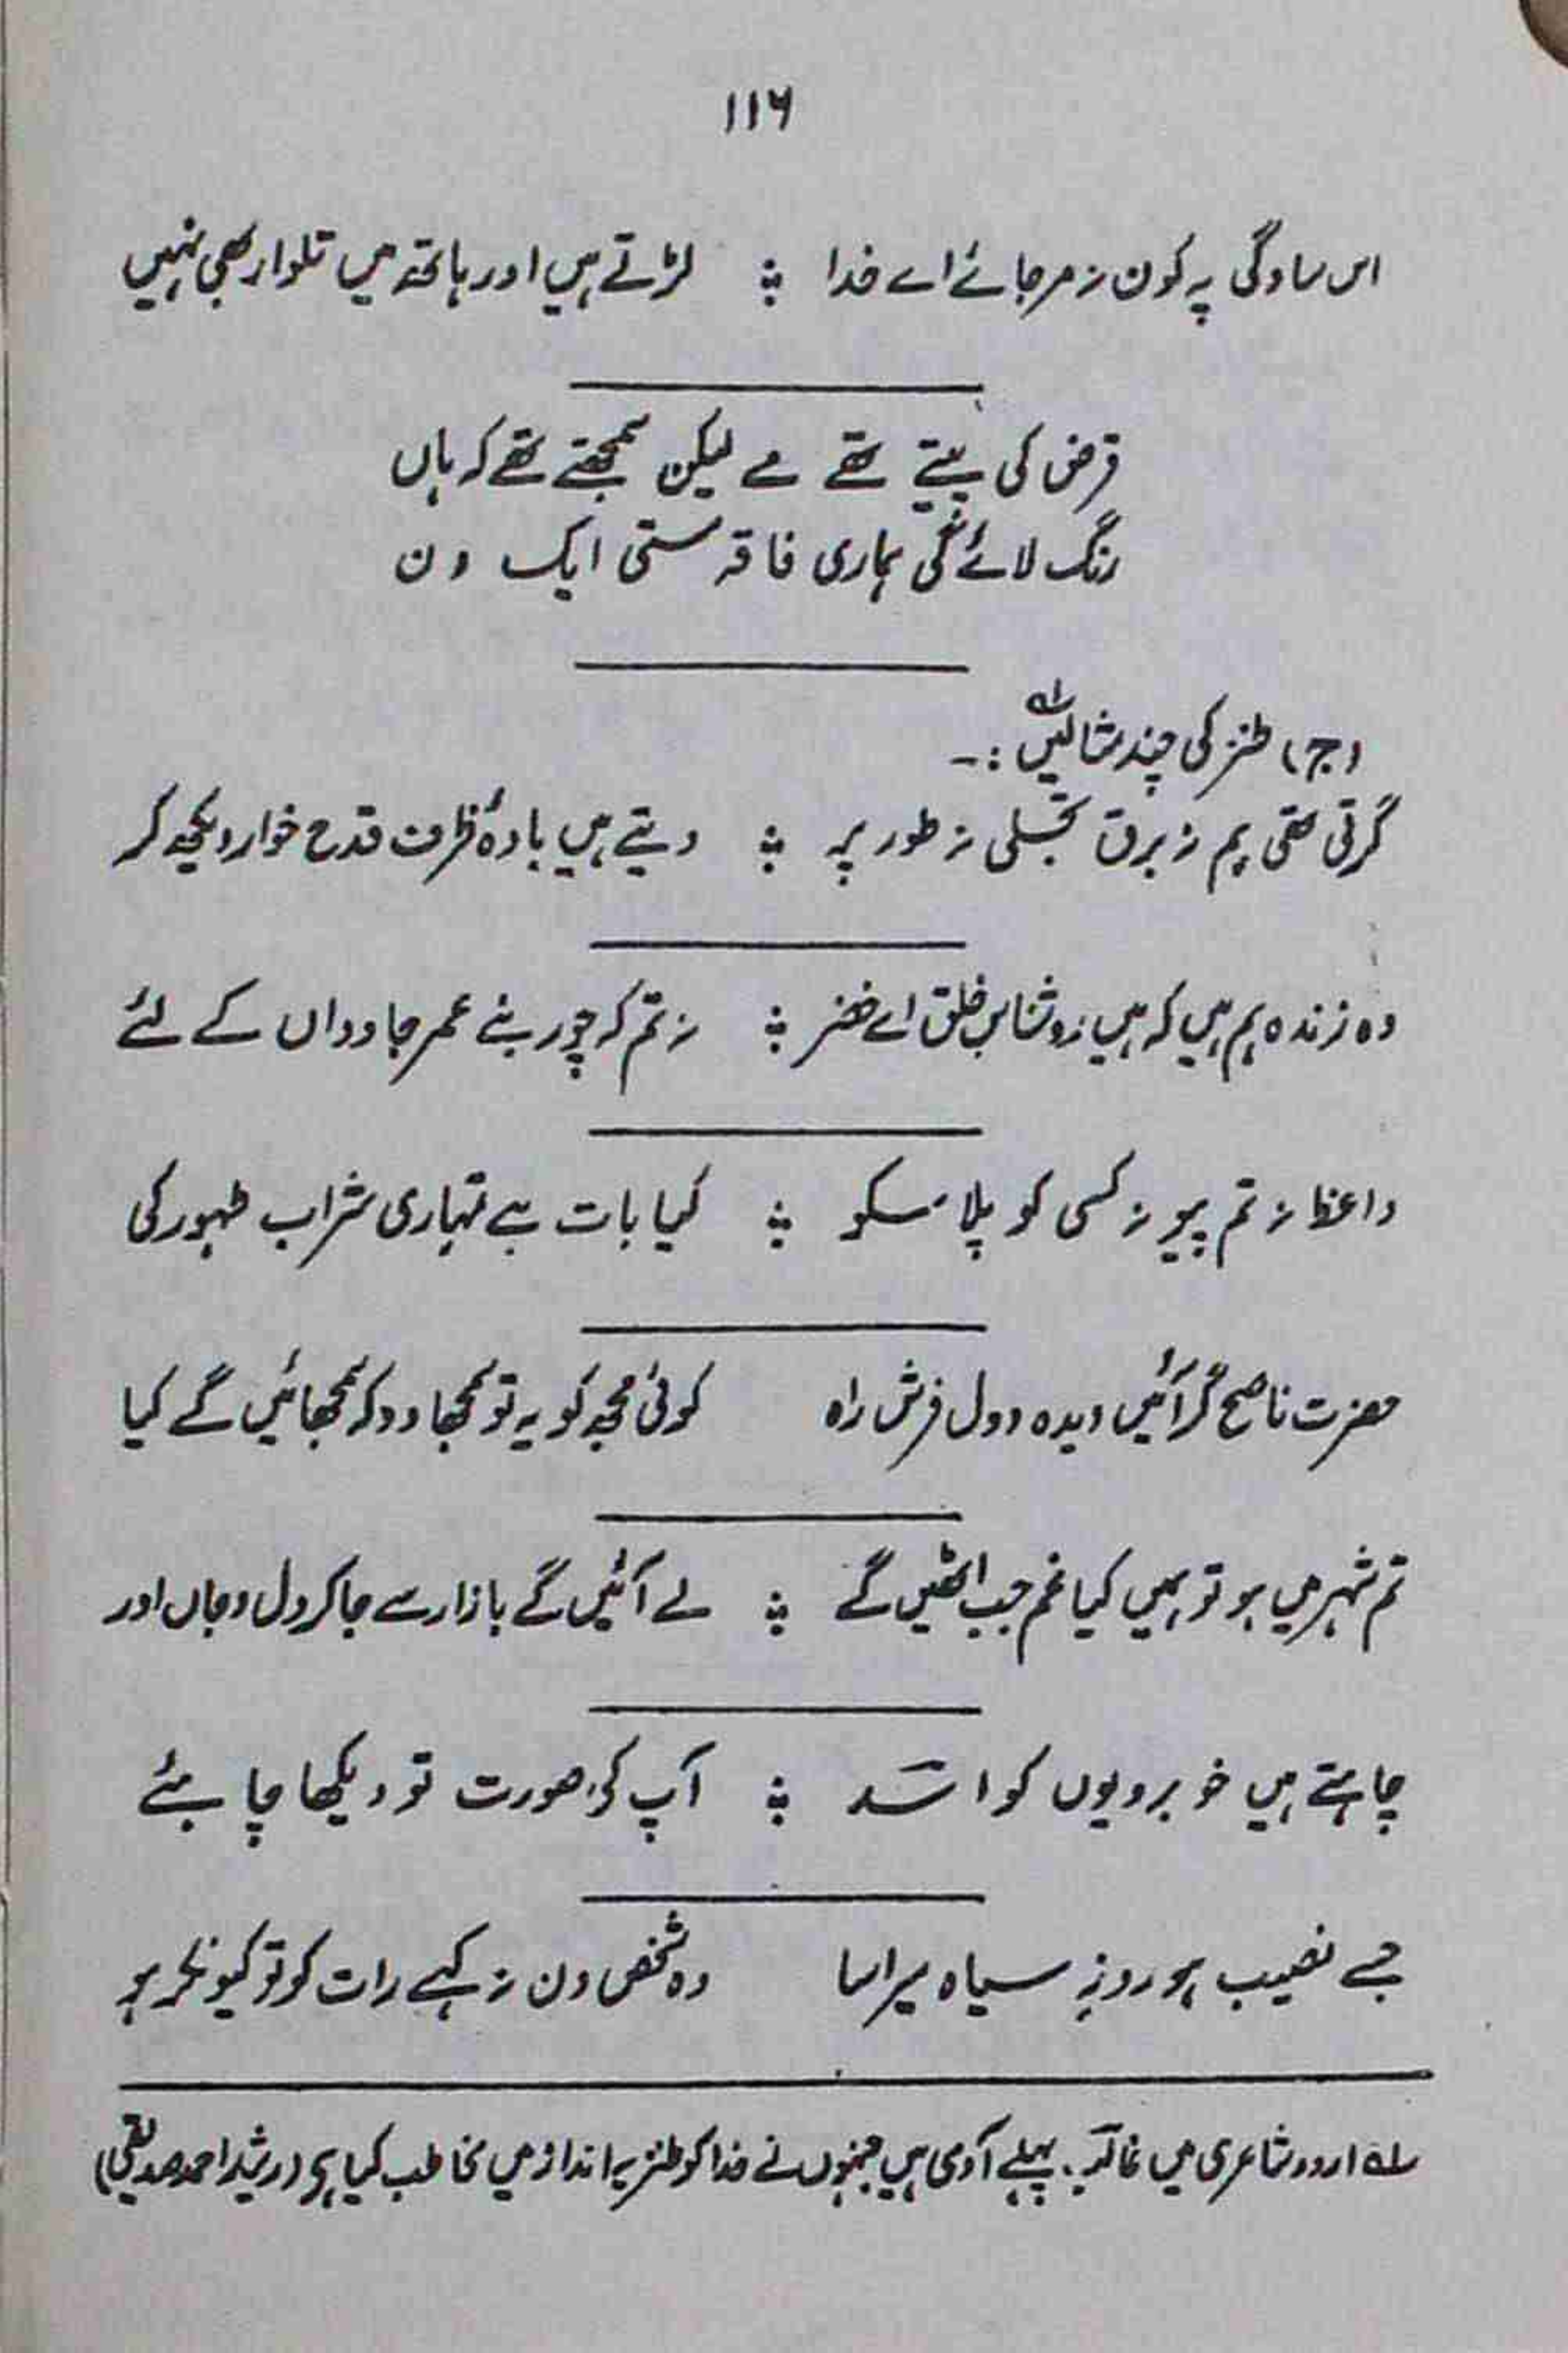 ۱۱۶
اس سادگی پہ کون نہ مر جائے اے خدا ؛ لڑتے ہیں اور ہاتھ میں تلوار بھی نہیں
قرض کی پیتے تھے مے لیکن سمجھتے تھے کہ ہاں
رنگ لائے گی ہماری فاقہ مستی ایک دن
(ج) طنز کی چند مثالیں۱ :۔
گرتی تھی ہم نہ برق تجلی نہ طور پر ؛ دیتے ہیں بادۂ ظرف قدح خوار دیکھ کر
وہ زندہ ہم ہیں کہ ہیں روشناسِ خلق اے خضر ؛ نہ تم کہ چور بنے عمر جاوداں کے لئے
واعظ نہ تم پیو نہ کسی کو پلا سکو ؛ کیا بات ہے تمہاری شراب طہور کی
حضرت ناصح گر آئیں دیدہ و دل فرش راہ کوئی مجھ کو یہ تو سمجھا دو کہ سمجھائیں گے کیا
تم شہر میں ہو تو ہمیں کیا غم جب اٹھیں گے ؛ لے آئیں گے بازار سے جا کر دل و جاں اور
چاہتے ہیں خوبرویوں کو اسدؔ ؛ آپ کی صورت تو دیکھا چاہئے
جسے نصیب ہو روزِ سیاہ میرا سا وہ شخص دن نہ کہے رات کو تو کیونکر ہو
۱؎ اردو شاعری میں غالبؔ پہلے آدمی ہیں جنہوں نے خدا کو طنزیہ انداز میں مخاطب کیا ہے (رشید احمد صدیقی)